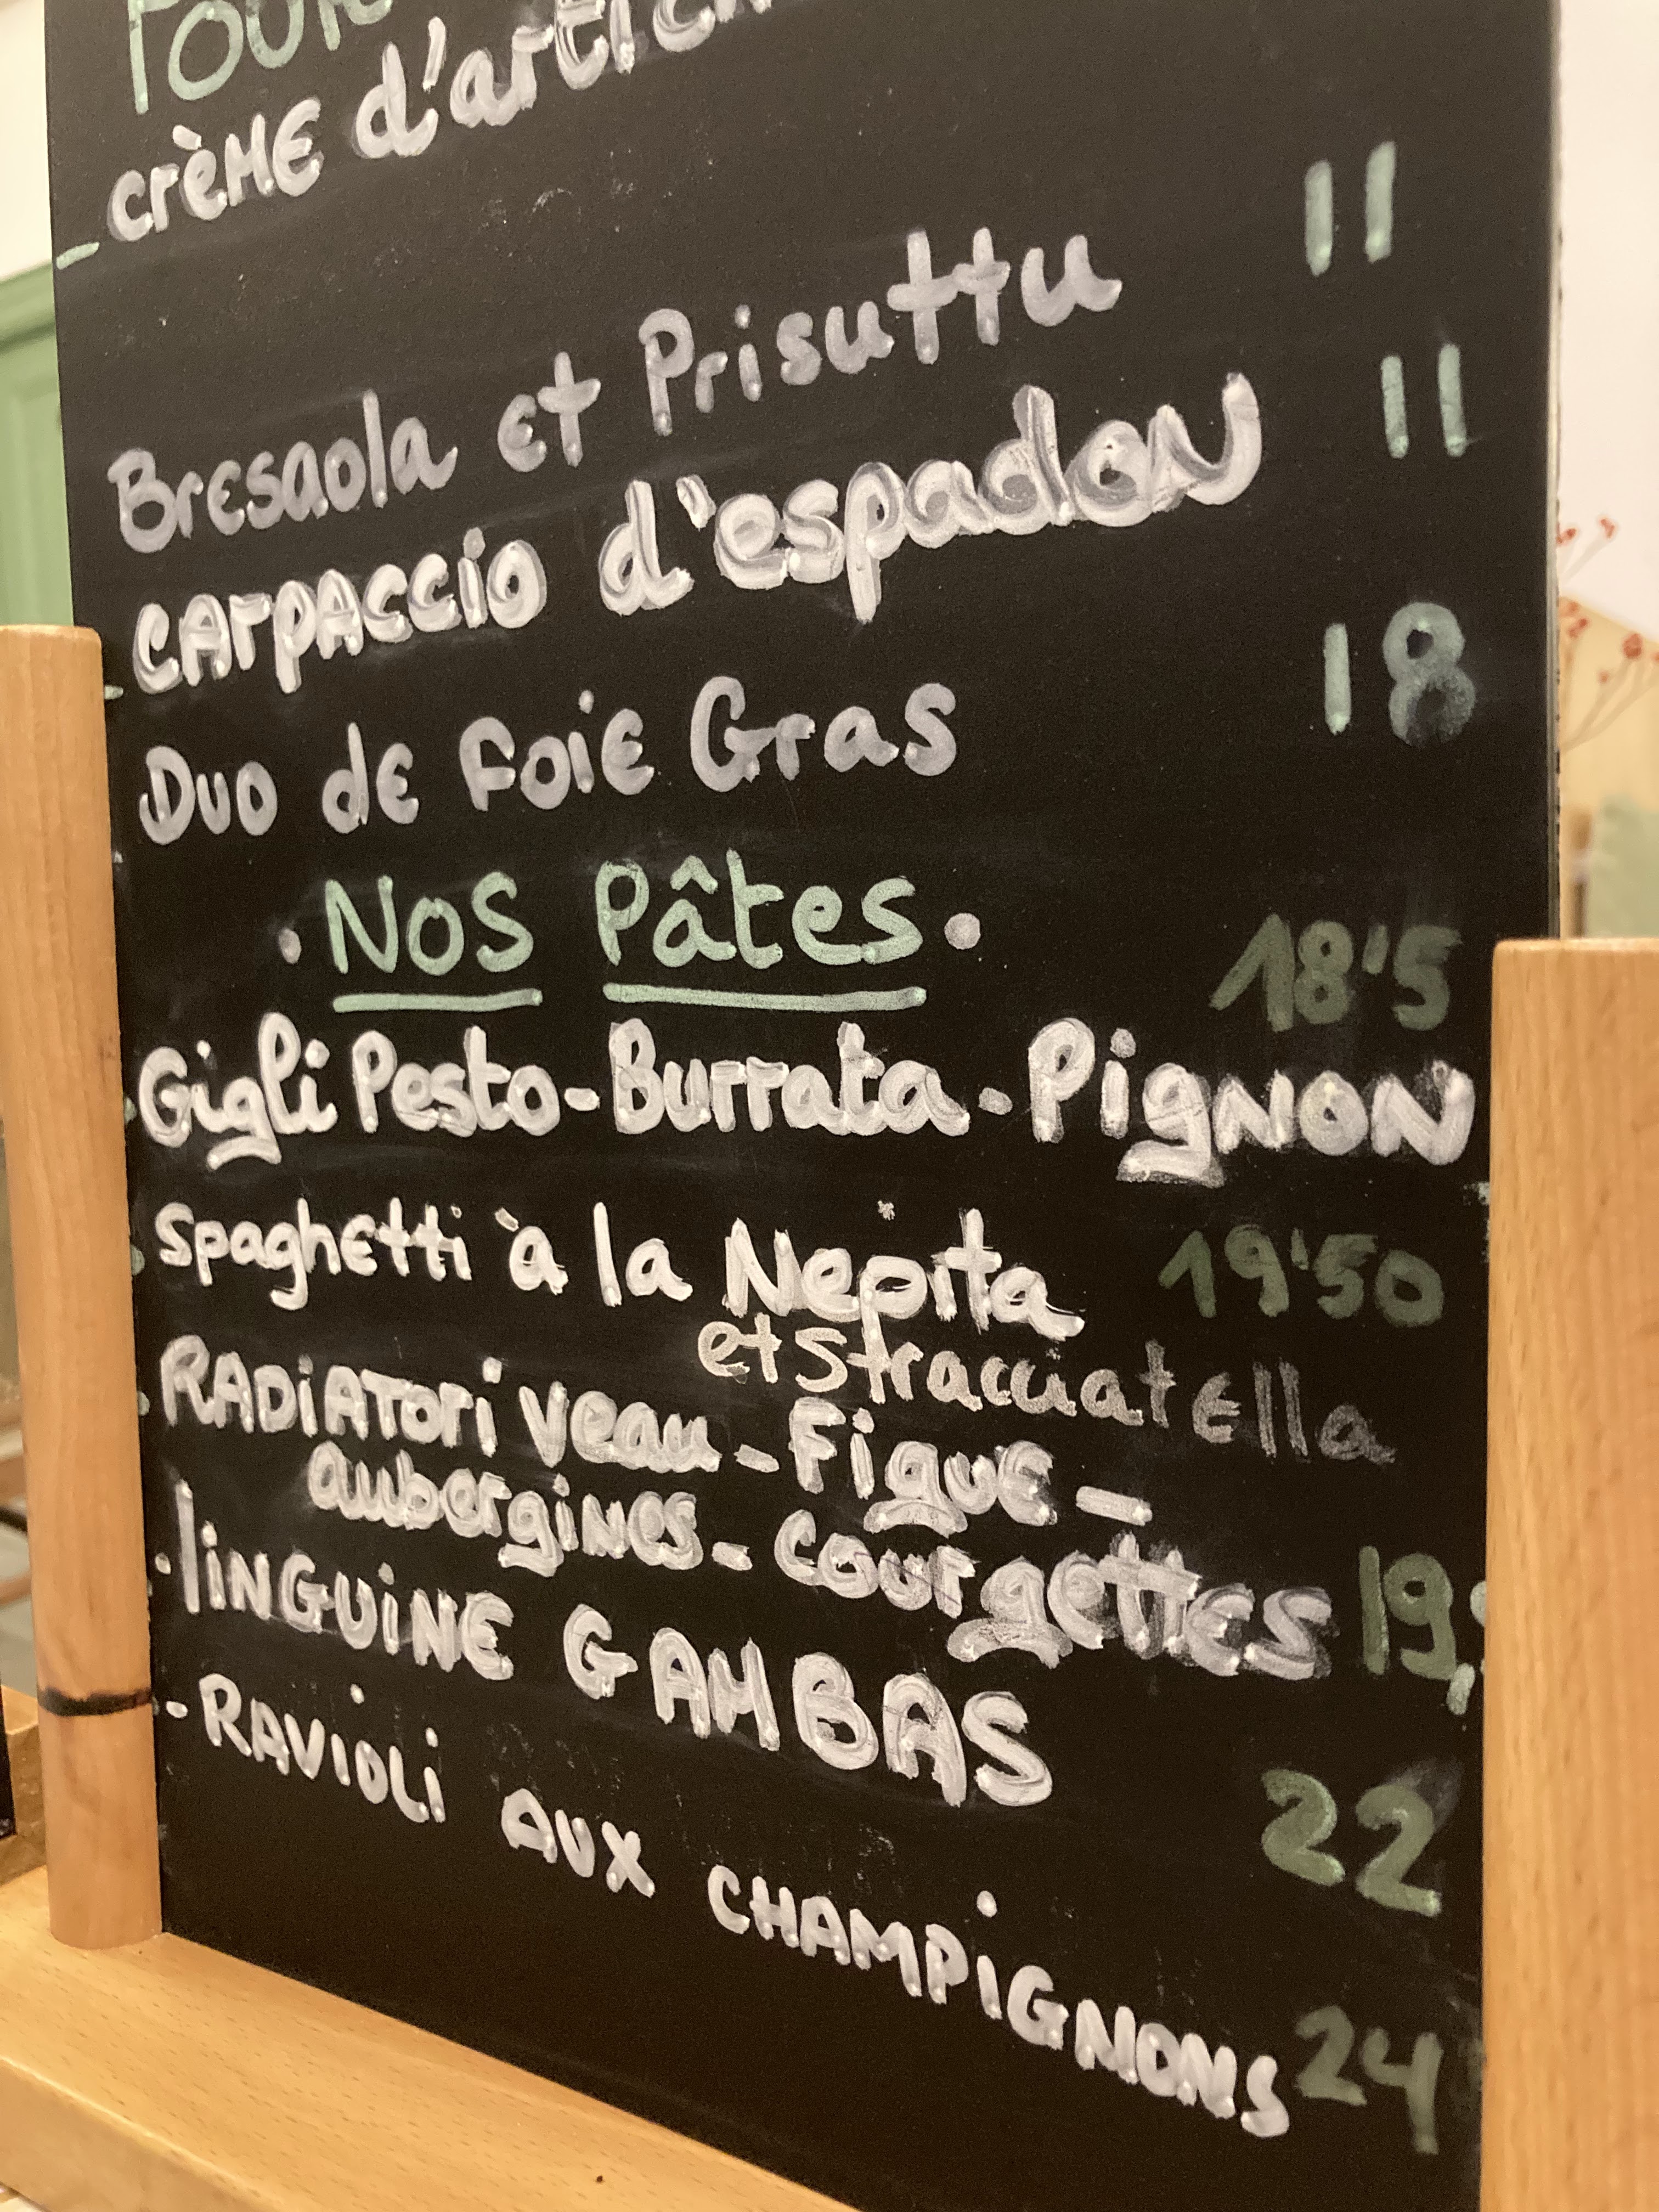 crème
11
Bresaola et Prisuttu
11
carpaccio d'espadon
18
Duo de Foie Gras
• Nos Pâtes •
18'5
Gigli Pesto - Burrata - Pignon
Spaghetti à la Nepita 19'50
et Stracciatella
Radiatori Veau - Figue -
aubergines - courgettes 19,
linguine GAMBAS
22
- RAVIOLI AUX CHAMPIGNONS 24